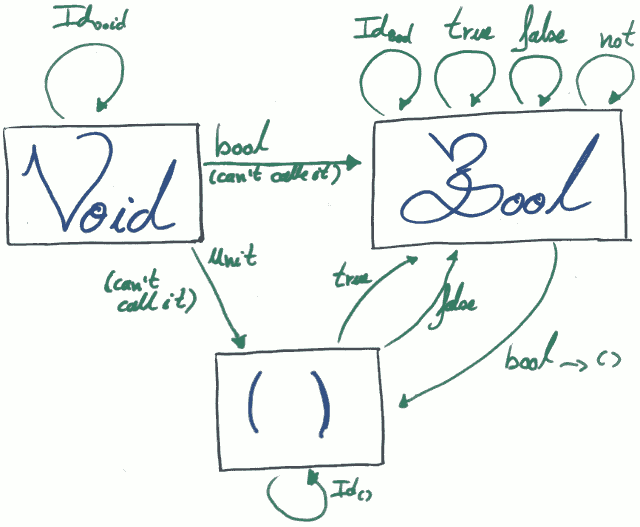 Id void
Id Bool true false not
bool
(can't calle it)
Void
Bool
unit
(can't
call it)
true
false
bool → ()
( )
Id ()